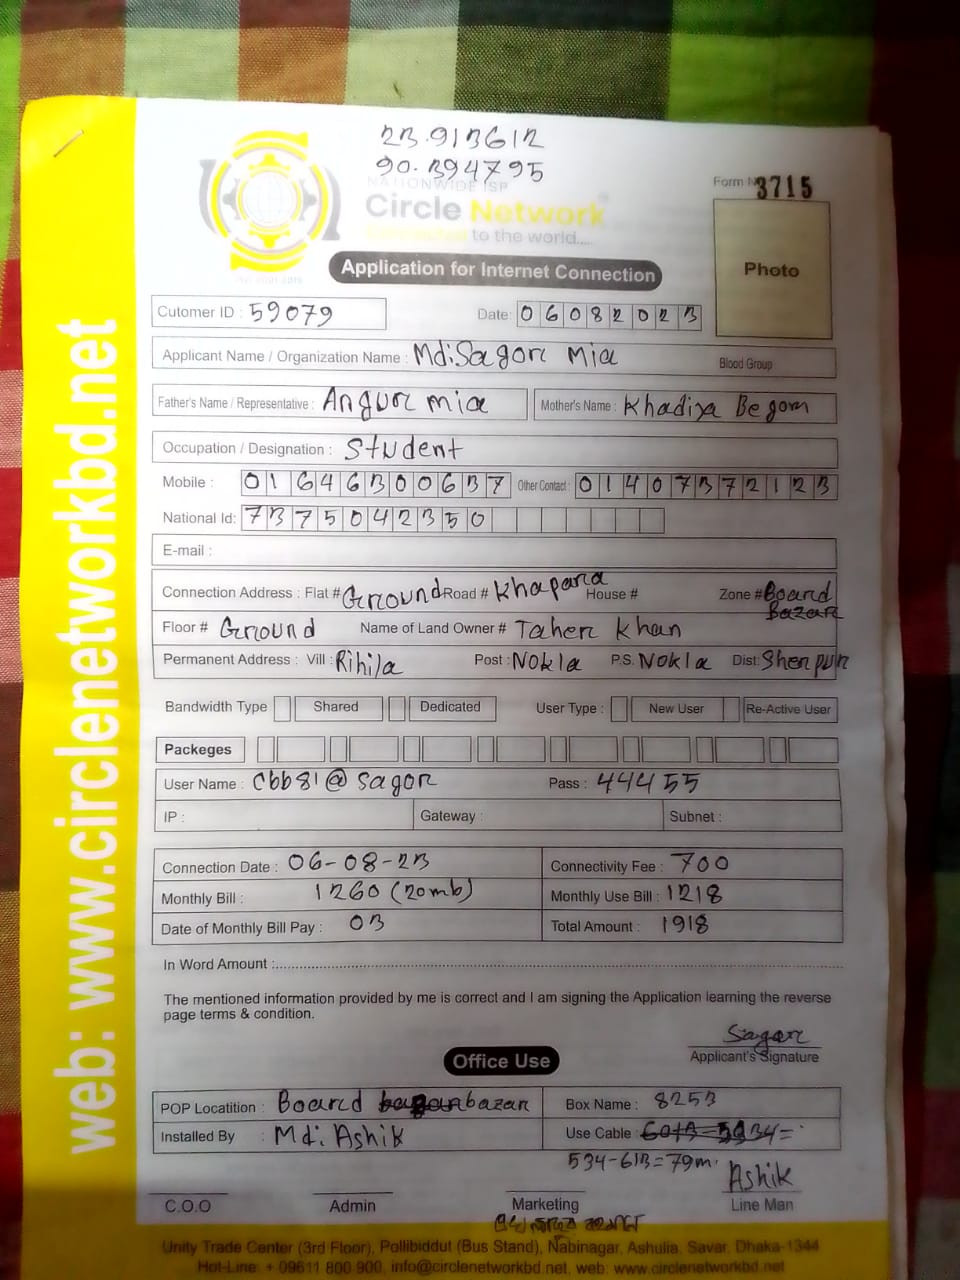 23.913612
90.394795
NATIONWIDE ISP
Form No 3715
Circle Network
to the world.....
Photo
Application for Internet Connection
Cutomer ID : 59079 Date: 06082023
Applicant Name / Organization Name : Md: Sagor Mia Blood Group
Father's Name / Representative : Angur mia Mother's Name : Khadiza Begom
Occupation / Designation : Student
Mobile : 01646300637 Other Contact : 01407372123
National Id: 7375042350
E-mail :
Connection Address : Flat # Ground Road # Khapara House # Zone # Board Bazar
Floor # Ground Name of Land Owner # Taher Khan
Permanent Address : Vill : Rihila Post : Nokla P.S. Nokla Dist: Sherpur
Bandwidth Type Shared Dedicated User Type : New User Re-Active User
Packeges
User Name : cbb81@sagor Pass : 44455
IP : Gateway : Subnet :
Connection Date : 06-08-23 Connectivity Fee : 700
Monthly Bill : 1260 (20mb) Monthly Use Bill : 1218
Date of Monthly Bill Pay : 03 Total Amount : 1918
In Word Amount :
The mentioned information provided by me is correct and I am signing the Application learning the reverse
page terms & condition.
Sagor
Applicant's Signature
Office Use
POP Locatition : Board bazar Box Name : 8253
Installed By : Md: Ashik Use Cable :
534-613=79m.
Ashik
C.O.O Admin Marketing Line Man
Unity Trade Center (3rd Floor), Pollibiddut (Bus Stand), Nabinagar, Ashulia, Savar, Dhaka-1344
Hot-Line: + 09611 800 900, info@circlenetworkbd.net, web: www.circlenetworkbd.net
web: www.circlenetworkbd.net